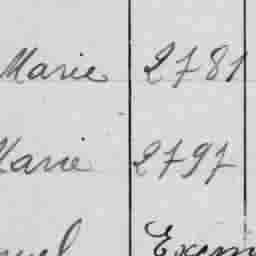 Marie 2781
Marie 2797